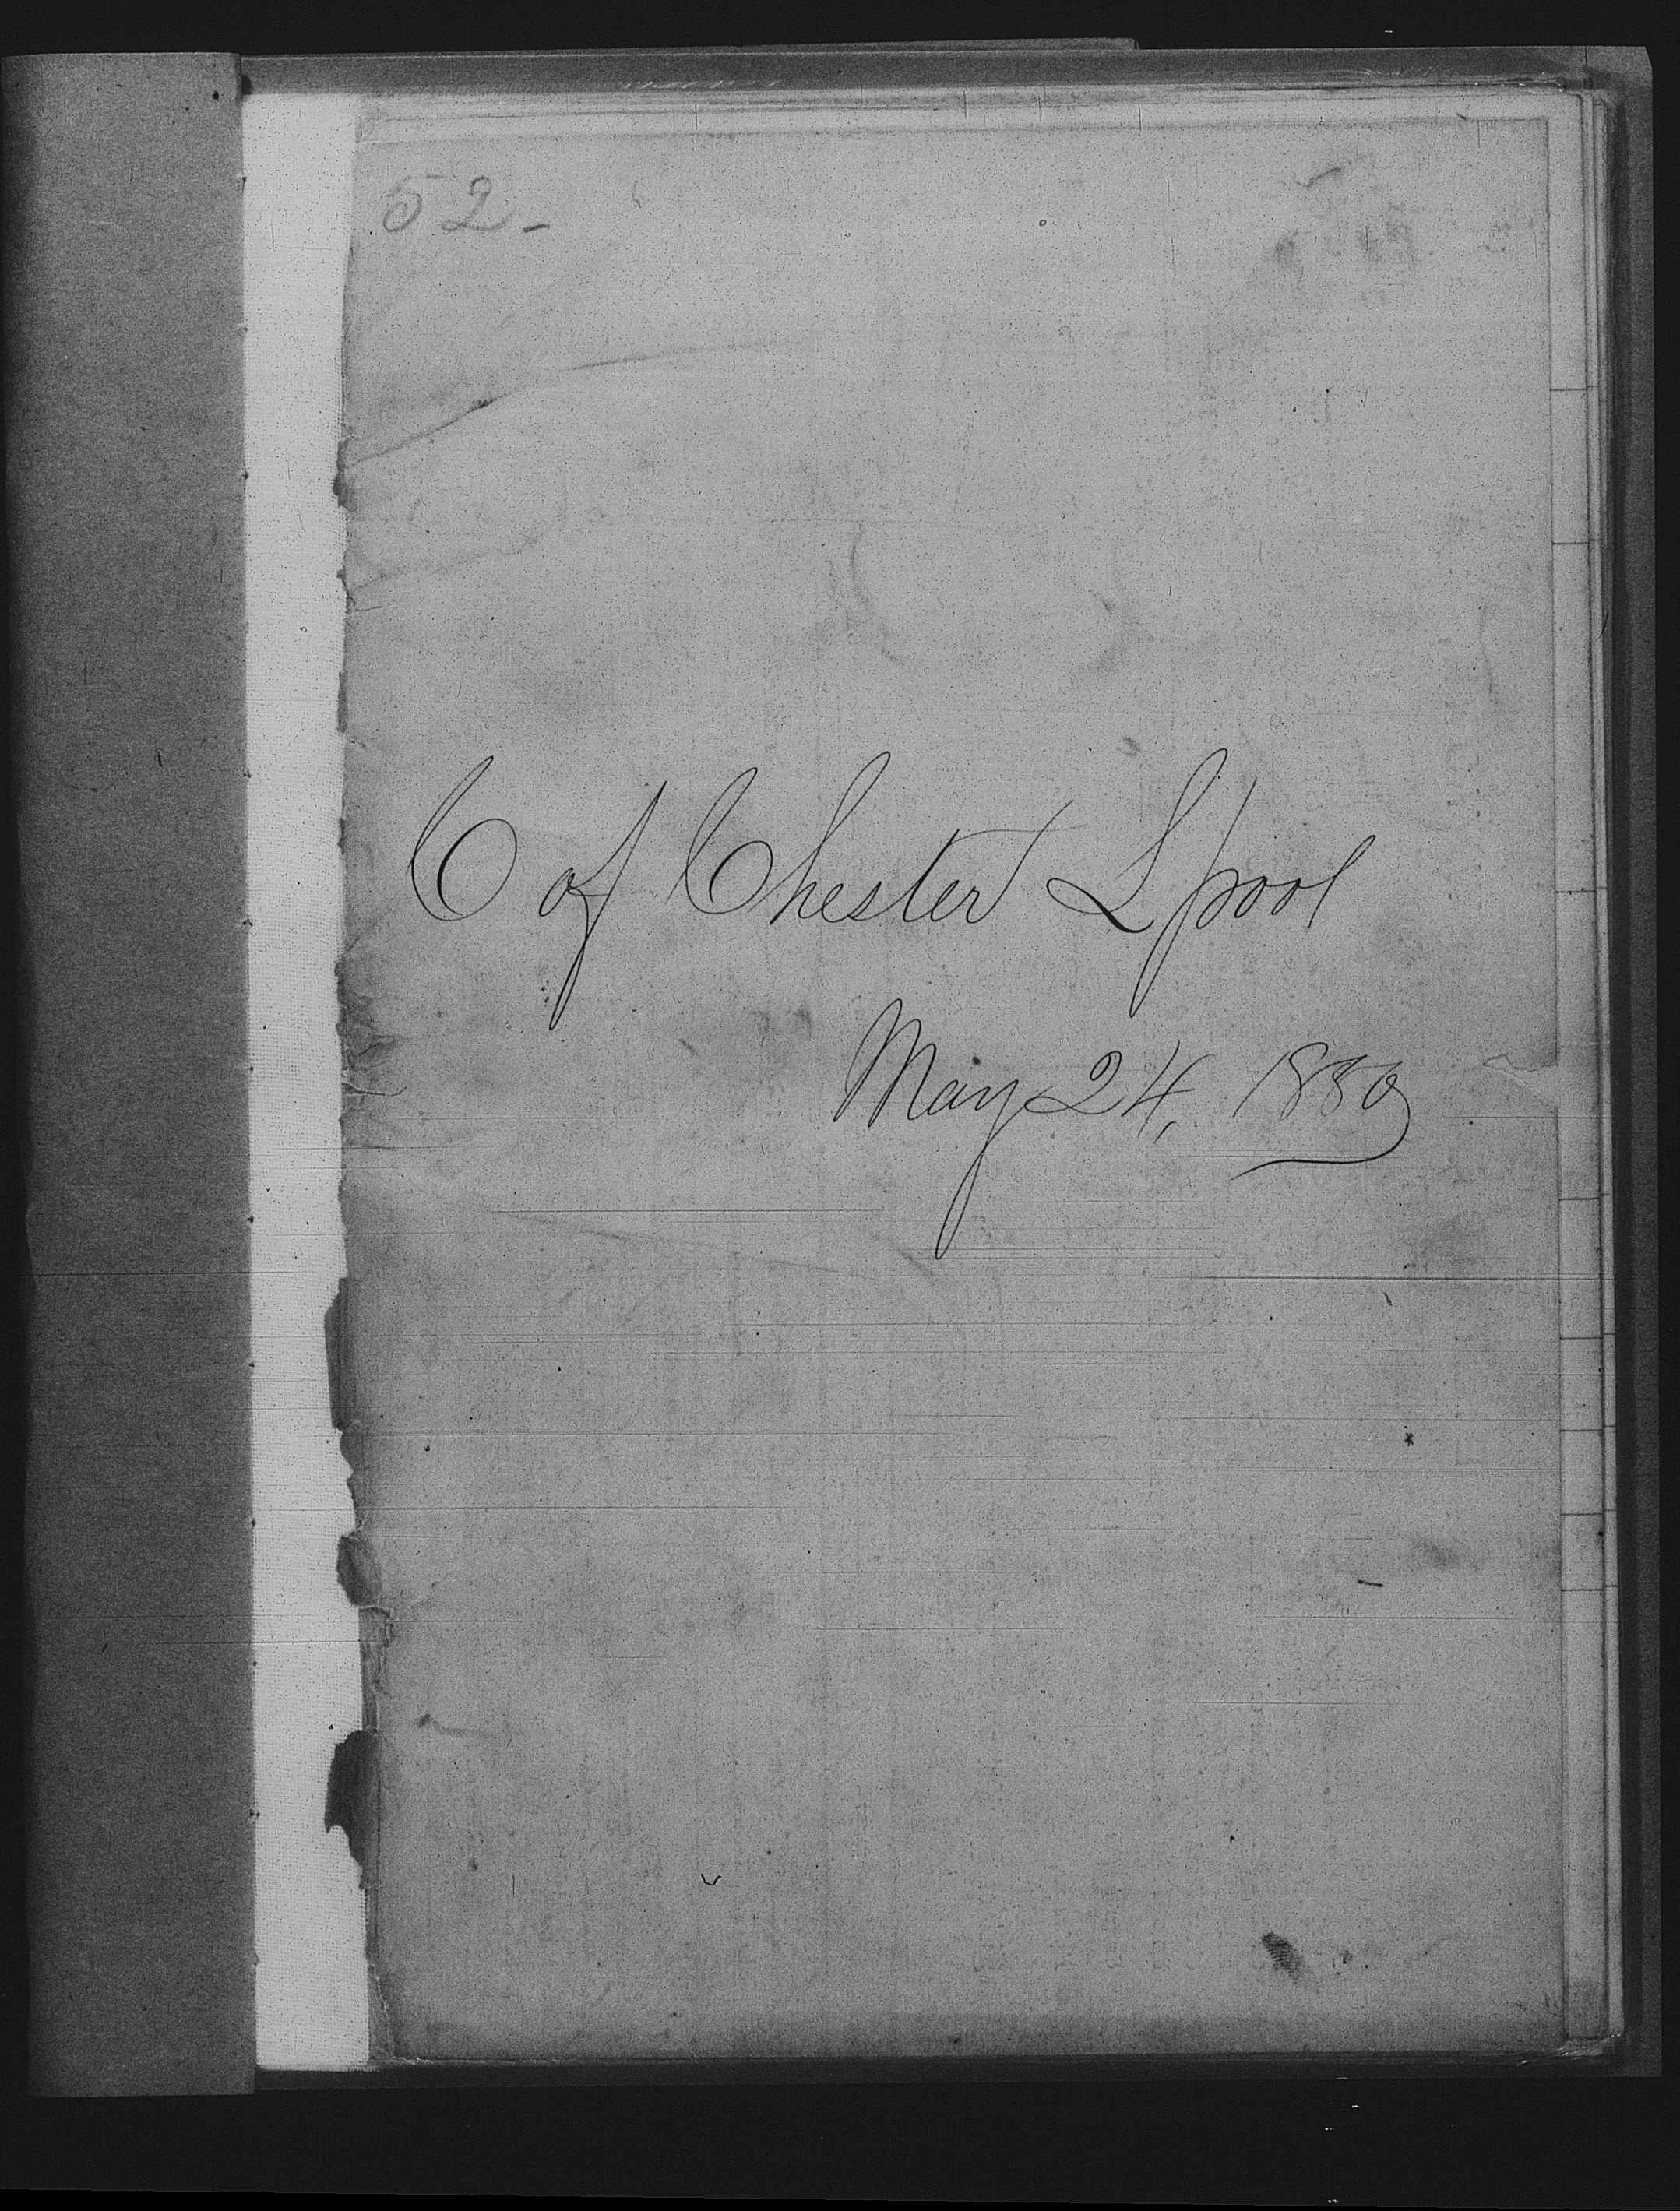 52-
C of Chester L'pool
May 24, 1880